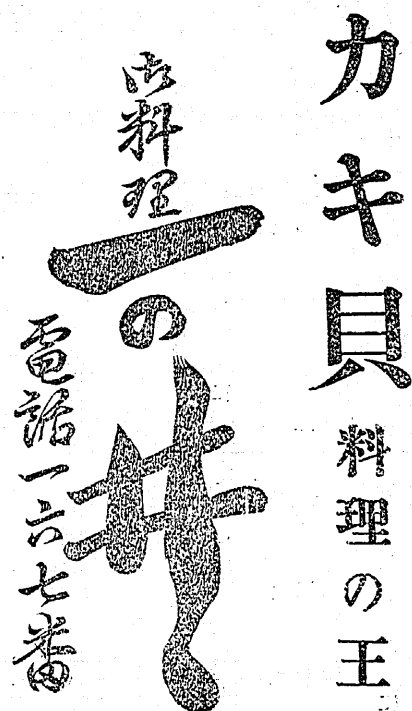 カキ貝料理の王
御料理
一の井
電話一六七番